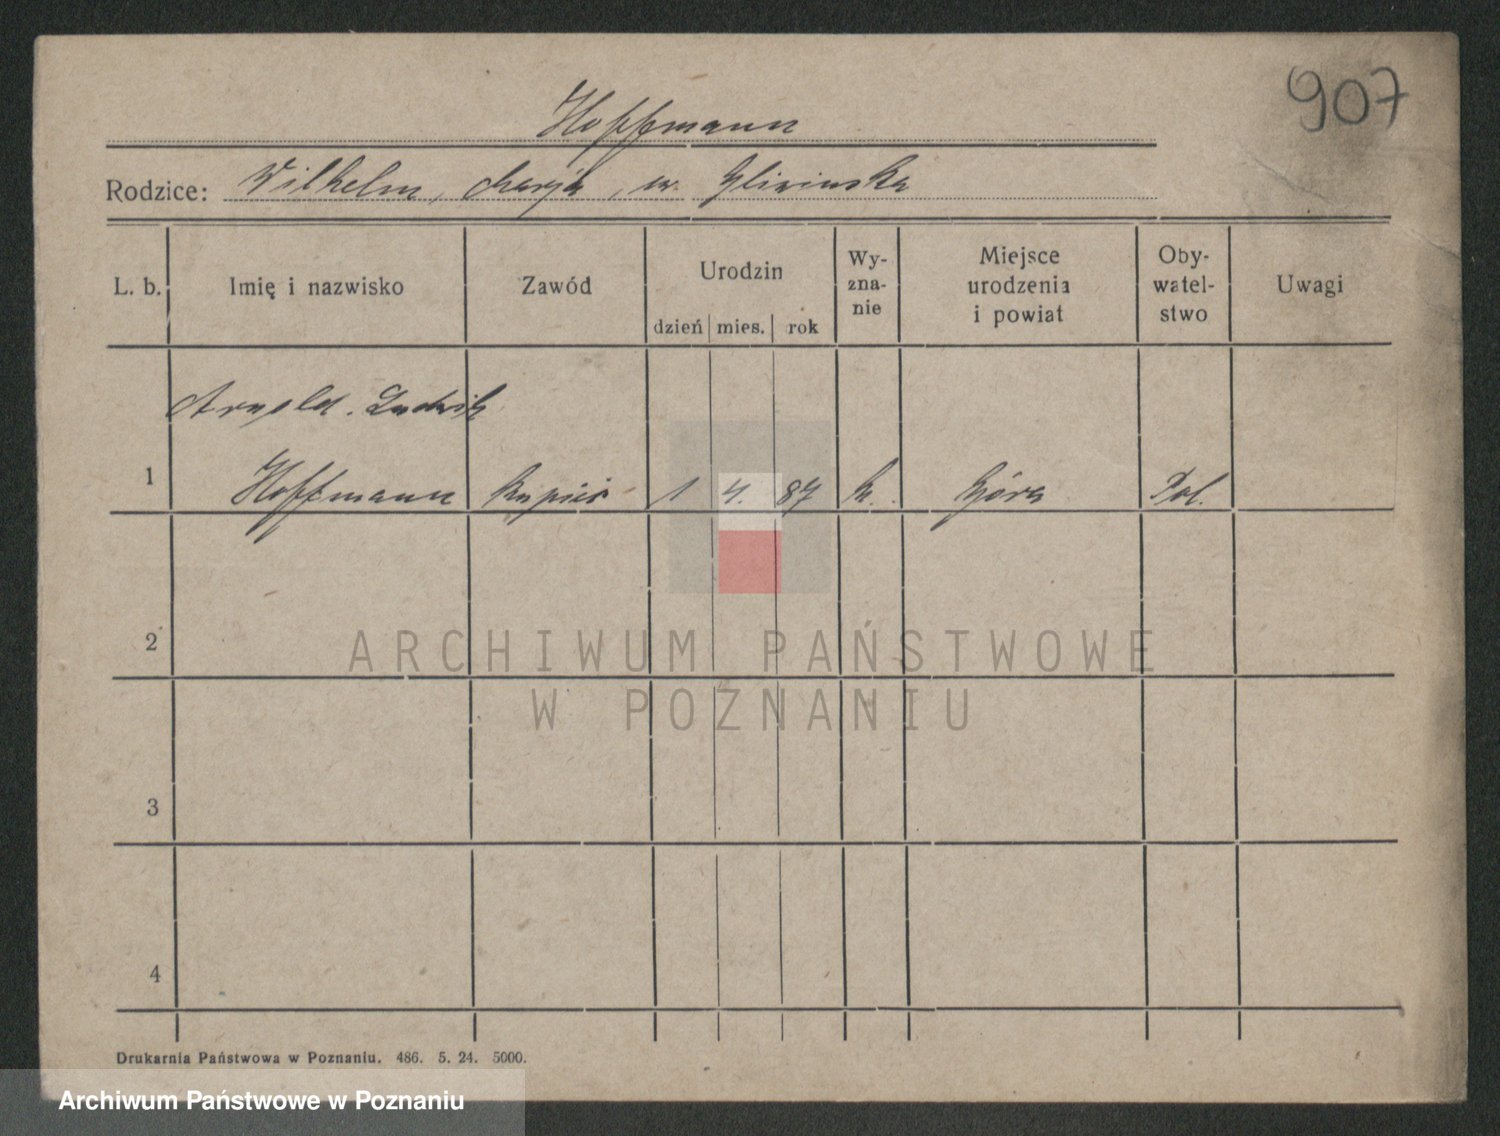 907
Hoffmann
Rodzice: Wilhelm, Marja, ur.
L. b. Imię i nazwisko Zawód Urodzin dzień mies. rok Wy-zna-nie Miejsce urodzenia i powiat Oby-watel-stwo Uwagi
Arnold. Ludwik
1 Hoffmann kupiec 1 4. 87 k. Góra Pol.
2
ARCHIWUM PAŃSTWOWE
W POZNANIU
3
4
Drukarnia Państwowa w Poznaniu. 486. 5. 24. 5000.
Archiwum Państwowe w Poznaniu